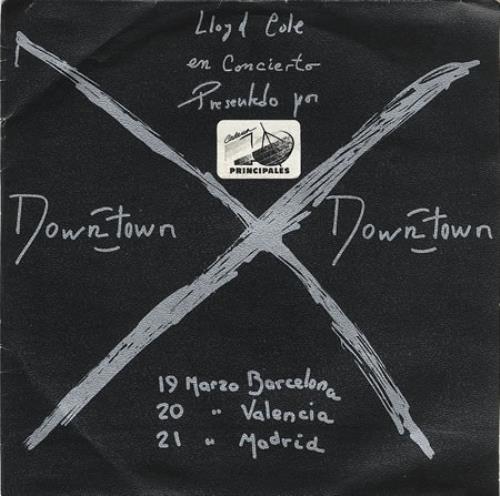 Lloyd Cole
en Concierto
Presentado por
Cadena
40
PRINCIPALES
Downtown
Downtown
19 Marzo Barcelona
20 " Valencia
21 " Madrid